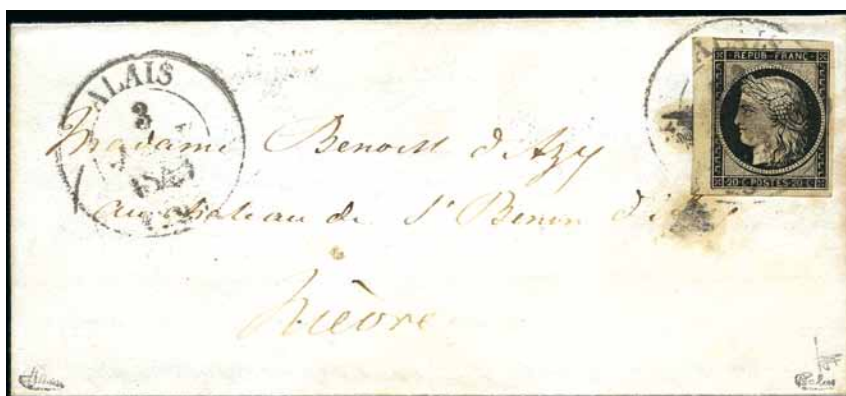 ALAIS
3
ALAIS
REPUB. FRANC.
20 C POSTES 20 C
Madame Benoist d'Azy
au chateau de St Benin d'Azy
Nièvre